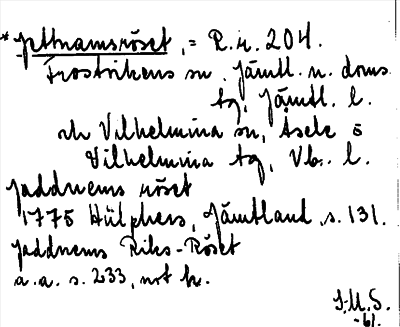 *Jettnamsröset, = R.r. 204.
Frostvikens sn, Jämtl. n. doms.
tg, Jämtl. l.
och Vilhelmina sn, Åsele o
Vilhelmina tg, Vb. l.
Jaddnems röset
1775 Hülphers, Jämtland, s. 131.
Jaddnems Riks-Röset
a.a. s. 233, not k.
J.M.S.
-61.